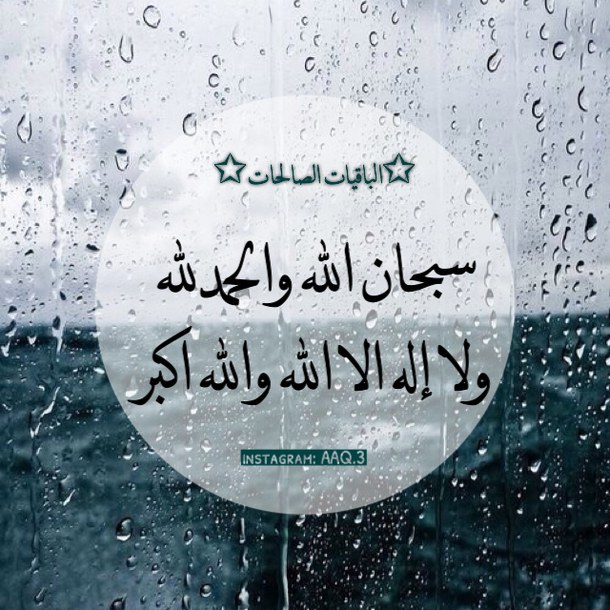 ☆الباقيات الصالحات☆
سبحان الله والحمدلله
ولا إله الا الله والله اكبر
INSTAGRAM: AAQ.3